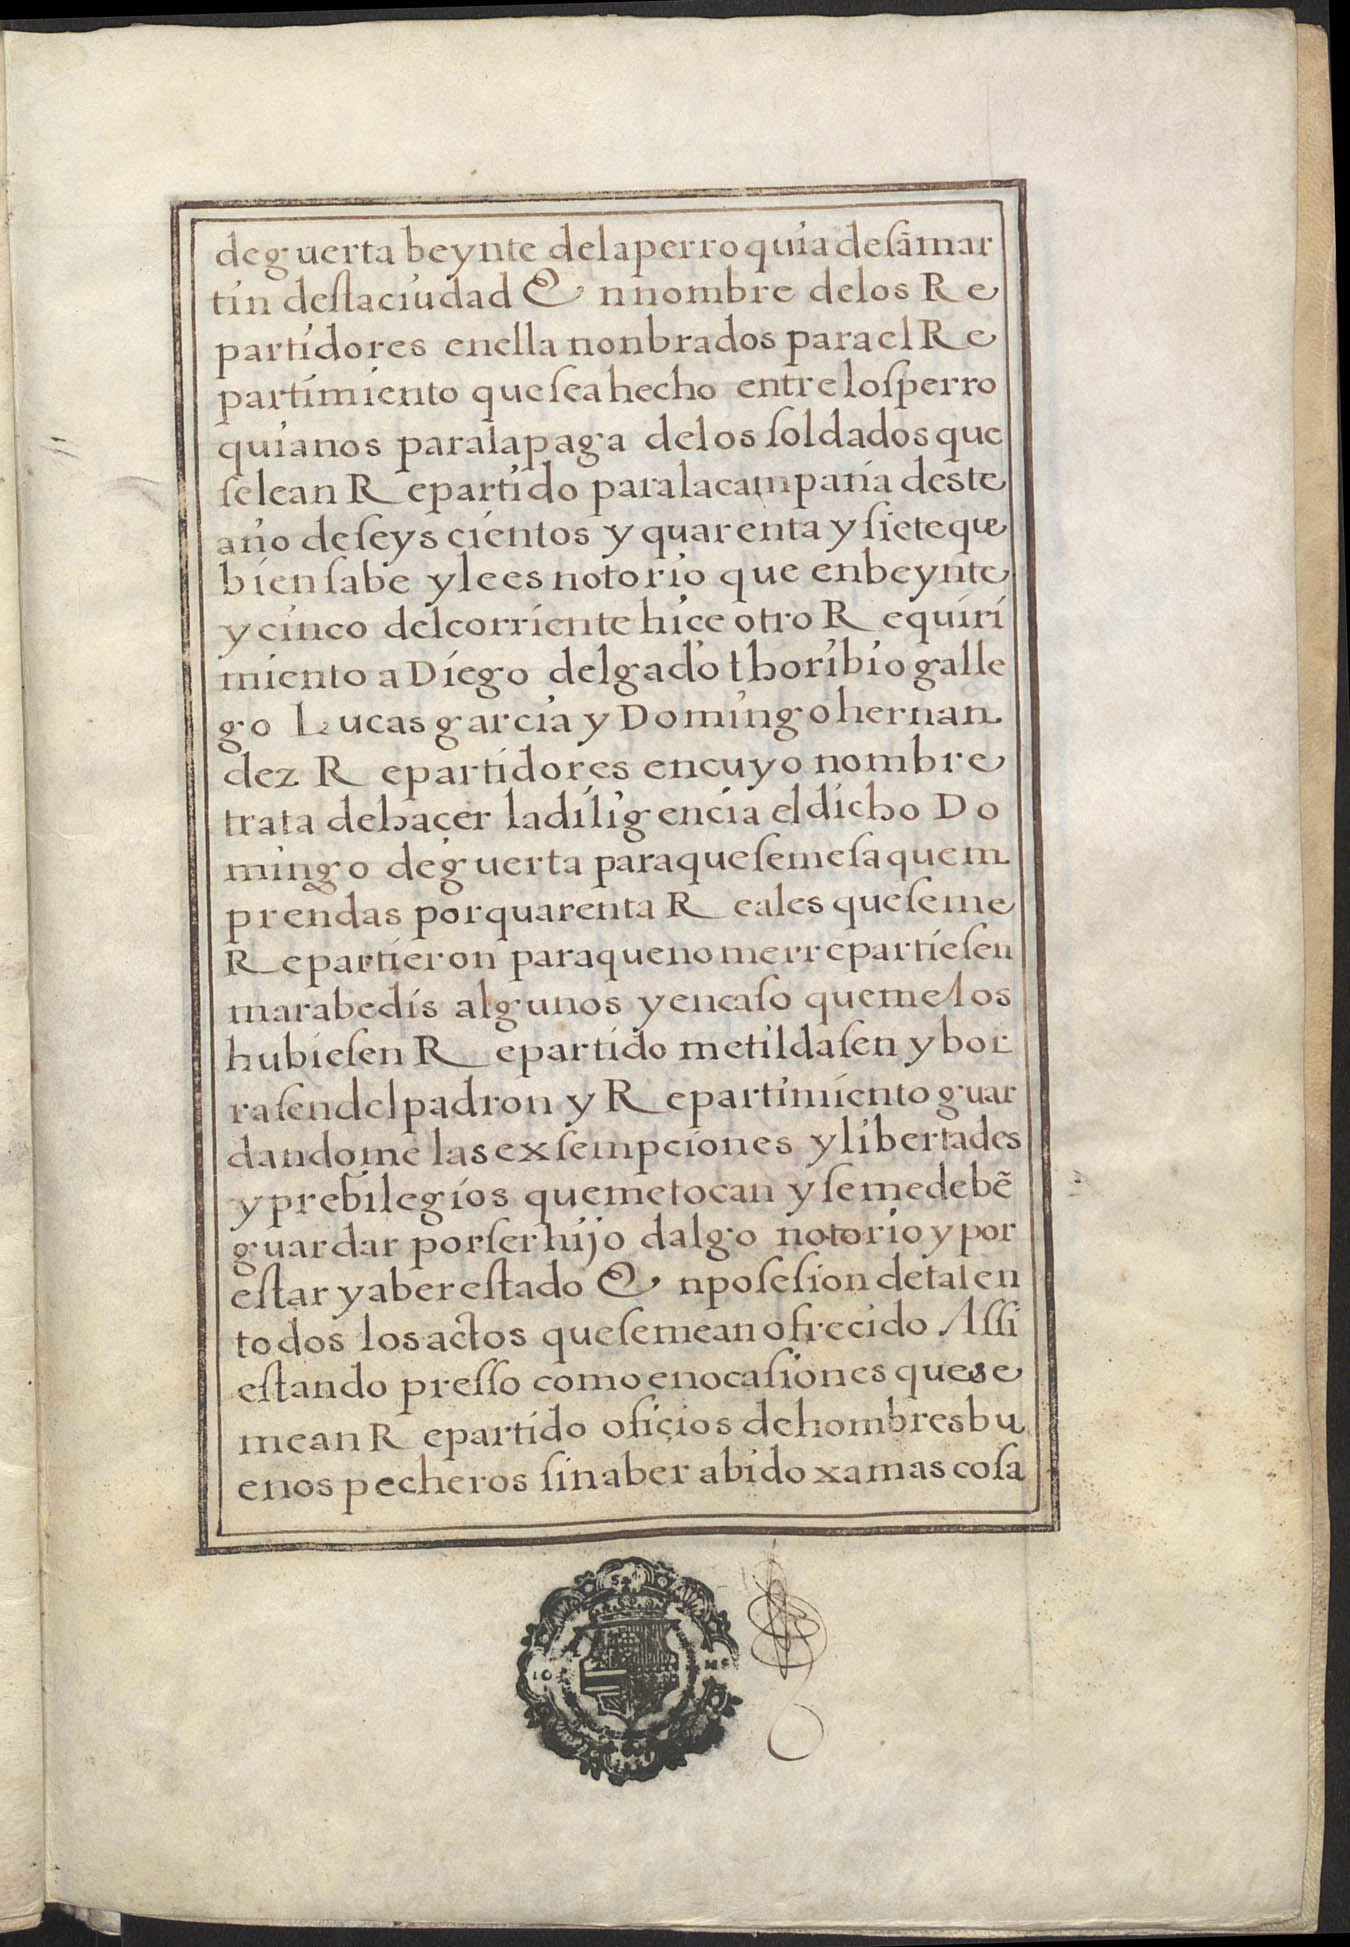 de guerta beynte de la perroquia de sā mar
tin desta ciudad En nombre de los Re
partidores en ella nonbrados para el Re
partimiento que sea hecho entre los perro
quianos para la paga de los soldados que
se lean Repartido para la campaña deste
año de seys cientos y quarenta y siete que
bien sabe y le es notorio que en beynte
y cinco del corriente hice otro Requiri
miento a Diego delgado thoribio galle
go Lucas garcia y Domingo hernan
dez Repartidores en cuyo nombre
trata de haçer la diligencia el dicho Do
mingo de guerta para que se me saquem
prendas por quarenta Reales que se me
Repartieron para que no me rrepartiesen
marabedis algunos y en caso que me los
hubiesen Repartido me tildasen y bor
rasen del padron y Repartimiento guar
dandome las exsempciones y libertades
y prebilegios que me tocan y se me debē
guardar por ser hijo dalgo notorio y por
estar y aber estado En posesion de tal en
todos los actos que se me an ofrecido Assi
estando presso como en ocasiones que se
me an Repartido ofiçios de hombres bu
enos pecheros sin aber abido xamas cosa